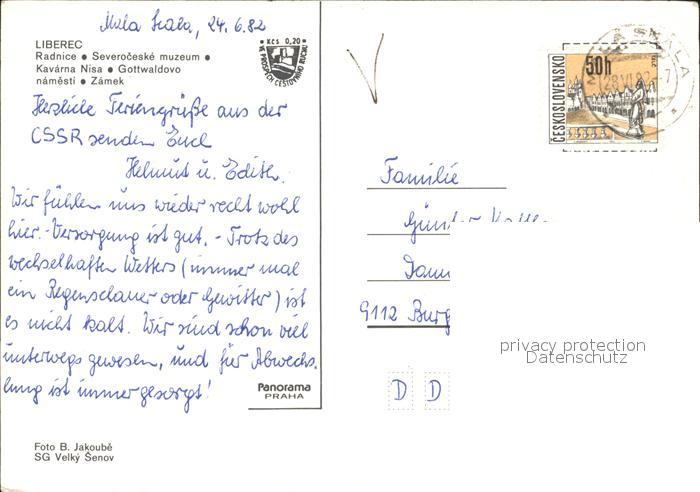 Mala Skala, 24.6.82
LIBEREC
Radnice • Severočeské muzeum •
Kavárna Nisa • Gottwaldovo
náměstí • Zámek
Kčs 0,20
VE PROSPĚCH CESTOVNÍHO RUCHU
Herzliche Feriengrüße aus der
CSSR senden Euch
Helmut u. Edith.
Wir fühlen uns wieder recht wohl
hier. - Versorgung ist gut. - Trotz des
wechselhaften Wetters (immer mal
ein Regenschauer oder Gewitter) ist
es nicht kalt. Wir sind schon viel
unterwegs gewesen, und für Abwechs.
lung ist immer gesorgt!
Panorama
PRAHA
Foto B. Jakoubě
SG Velký Šenov
ČESKOSLOVENSKO
50h
SKALA
28.VI.82-7
Familie
9112 Burg
D D
privacy protection
Datenschutz